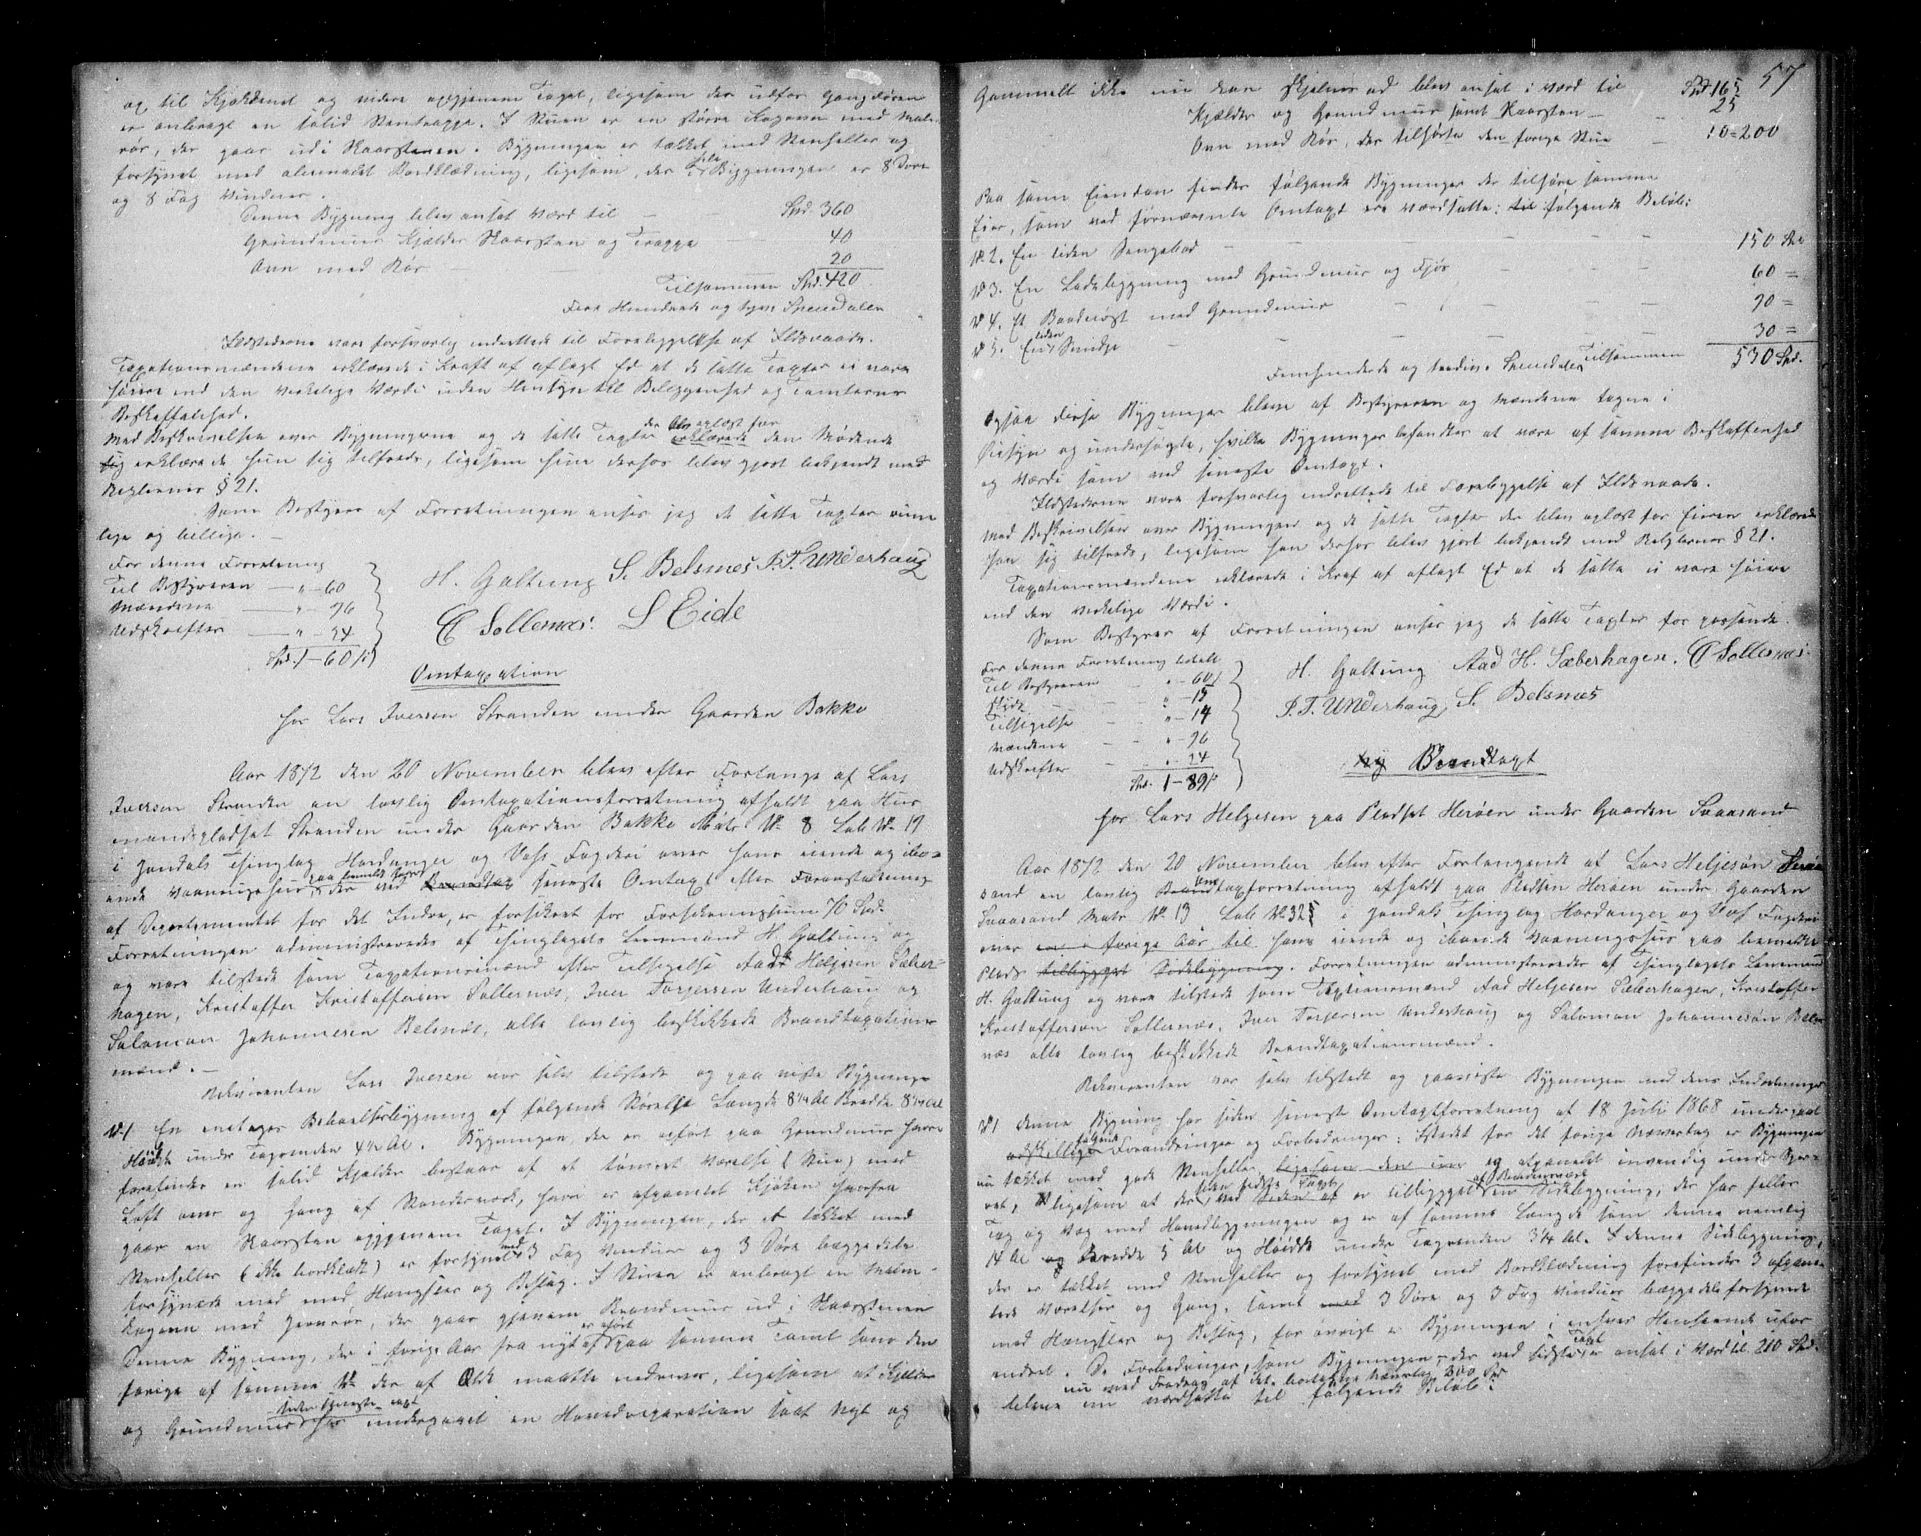 og til Kjøkkenet og videre opgjenem Taget, ligesom der udfor Gangdøren
er anbragt en solid Stentrappe. I Stuen er en større Kogeovn med Malm
rør, der gaar ud i Skaarstenen. Bygningen er tækket med Stenheller og
forsynet med Bordklædning, ligesom der i hele Bygningen er 8 Døre
og 8 Fag Vinduer.
Denne Bygning blev ansat Værd til Spd. 360
Grundmuur Kjælder Skaarsten og Trappe 40
Ovn med Rør 20
Tilsammen Spd. 420
Fire Hundrede og tyve Speciedaler
Ildstederne vare forsvarlig indrettede til Forebyggelse af Ildsvaade.
Taxationsmændene erklærede i Kraft af aflagt Ed at de satte Taxter ei vare
høiere end den virkelige Værdi uden Hensyn til Beliggenhed og Tomternes
Beskaffenhed.
Med Beskrivelsen over Bygningerne og de satte Taxter der blev oplæst for den Mødende
erklærede hun sig tilfreds, ligesom hun derhos blev gjort bekjendt med
Reglernes § 21.
Som Bestyrer af Forretningen anser jeg de satte Taxter rime
lige og billige. —
For denne Forretning
Til Bestyreren — " – 60
Mændene — " – 96
Udskrifter — " – 24
Spd. 1 – 60 ß
H. Galtung S. Belsnæs I. T. Underhaug
C Sollesnæs. L Eide
Omtaxation
for Lars Iversen Stranden under Gaarden Bakke
Aar 1872 den 20 November blev efter Forlangende af Lars
Iversen Stranden en lovlig Omtaxationsforretning afholdt paa Hus
mandspladset Stranden under Gaarden Bakke Matr. No. 8 Løb No. 19
i Jondals Thinglag Hardanger og Voss Fogderi over hans eiende og ibo-
ende Vaaningshus paa bemeldte Plads der ved seneste Omtaxt efter Foranstaltning
af Departementet for det Indre, er forsikret for Forsikringssum 70 Spd.
Forretningen administreredes af Thinglagets Lensmand H. Galtung og
og vare tilstede som Taxationsmænd efter Tilsigelse Aad Helgesen Sæber-
hagen, Kristoffer Kristoffersen Sollesnæs, Iver Torjersen Underhaug og
Salomon Johannesen Belsnæs, alle lovlig beskikkede Brandtaxations
mænd. —
Rekvirenten Lars Iversen var selv tilstede og paaviste Bygninge
No. 1 En etages Beboelsesbygning af følgende Størelse Længde 8¼ Al Bredde 8¼ Al
Høide under Tagrenden 4½ Al. Bygningen der er opført paa Grundmuur hvori
forefindes en solid Kjelder bestaar af et tømret Værelse (Stue) med
Loft over og Gang af Standerverk, hvori er afpanelet Kjøken hvorfra
gaar en Skaarsten opgjenem Taget. I Bygningen, der er tækket med
Stenheller (ikke bordklædt) er forsynet med 3 Fag Vinduer og 3 Døre begge dele
forsynede med Hængsler og Beslag. I Stuen er anbragt en Malm-
kogeovn med Jernrør, der gaar gjenem Brandmuur ud i Skaarstenen
Denne Bygning, der i forige Aar fra nyt af er opført paa samme Tomt som den
forige af samme No. der af Ælde maatte nedrives, ligesom at Kjelder
og Grundmuur siden seneste Taxt har undergaaet en Hovedreparation saat Nyt og
57
Gammelt ikke nu kan skjelnes ad blev ansat i Værd til Spd. 165
Kjælder og Grundmuur samt Skaarsten — 25
Ovn med Rør, der tilhørte den forige Stue — 10 = 200
Paa samme Eiendom findes følgende Bygninger der tilhøre samme
Eier, som ved førnævnte Omtaxt ere værdsatte til følgende Beløb:
No. 2. En liden Sengebod — 150 Spd
No. 3. En Ladebygning med Grundmuur og Fjøs — 60 =
No. 4. Et Baadenøst med Grundmuur — 90 =
No. 5. En liden Smidje — 30 =
Tilsammen 530 Spd.
Femhundrede og tredive Speciedaler
Ogsaa disse Bygninger bleve af Bestyreren og Mændene tagne i
Øiesyn og undersøgte, hvilke Bygninger befandtes at være af samme Beskaffenhed
og Værdi som ved seneste Omtaxt.
Ildstederne vare forsvarlig indrettede til Forebyggelse af Ildsvaade.
Med Beskrivelsen over Bygningerne og de satte Taxter der blev oplæst for Eieren erklærede
han sig tilfreds, ligesom han derhos blev gjort bekjendt med Reglernes § 21.
Taxationsmændene erklærede i Kraft af aflagt Ed at de satte ei vare høiere
end den virkelige Værdi.
Som Bestyrer af Forretningen anser jeg de satte Taxter for passende.
For denne Forretning betalt
Til Bestyreren — " – 60
Skids — " – 15
Tilsigelse — " – 14
Mændene — " – 96
Udskrifter — " – 24
Spd. 1 – 89 ß
H. Galtung Aad H. Sæberhagen. C Sollesnæs.
I. T. Underhaug, S. Belsnæs
Ny Brandtaxt
for Lars Helgesen paa Pladset Herøen under Gaarden Svaasand
Aar 1872 den 20 November blev efter Forlangende af Lars Helgesøn Svaa
sand en lovlig Omtaxtforretning afholdt paa Pladsen Herøen under Gaarden
Svaasand Matr No. 13 Løb No. 32 i Jondals Thinglag Hardanger og Voss Fogderi
over forige Aar til hans eiende og iboende Vaaningshus paa bemeldte
Plads tilbygget Sidebygning. Forretningen administreredes af Thinglagets Lensmand
H. Galtung og vare tilstede som Taxtionsmænd Aad Helgesen Sæberhagen, Kristoffer
Kristoffersøn Sollesnæs, Iver Torjersen Underhaug og Salomon Johannesøn Bels
næs alle lovlig beskikkede Brandtaxationsmænd.
Rekvirenten var selv tilstede og paaviste Bygningen med dens Indretninger
No. 1 Denne Bygning har siden senest Omtaxtforretning af 18 Juli 1868 undergaaet
adskillige følgende Forandringer og Forbedringer: Istedet for det forige Nævertag er Bygningen
nu tækket med gode Stenheller ligesom den er og afpanelet invendig under Sper-
ret, ligesom at der siden sidste Taxt er tilbygget af Standerverk en Sidebygning, der har fælles
Tag og Væg med Hovedbygningen og er af samme Længde som denne nemlig
14 Al og Bredde 5 Al og Høide under Tagrenden 3¼ Al. I denne Sidebygning,
der er tækket med Stenheller og forsynet med Bordklædning forefindes 3 afpane-
lede Værelser og Gang, samt med 3 Døre og 3 Fag Vinduer begge dele forsynede
med Hængsler og Beslag, for øvrigt er Bygningen i enhver Henseende ufor
andret. De Forbedringer, som Bygningen, der ved sidste Taxt er ansat i Værd til 210 Spd.
nu med Fradrag af det borttagne Nævertag 300 Spd
bleve nu værdsatte til følgende Beløb: